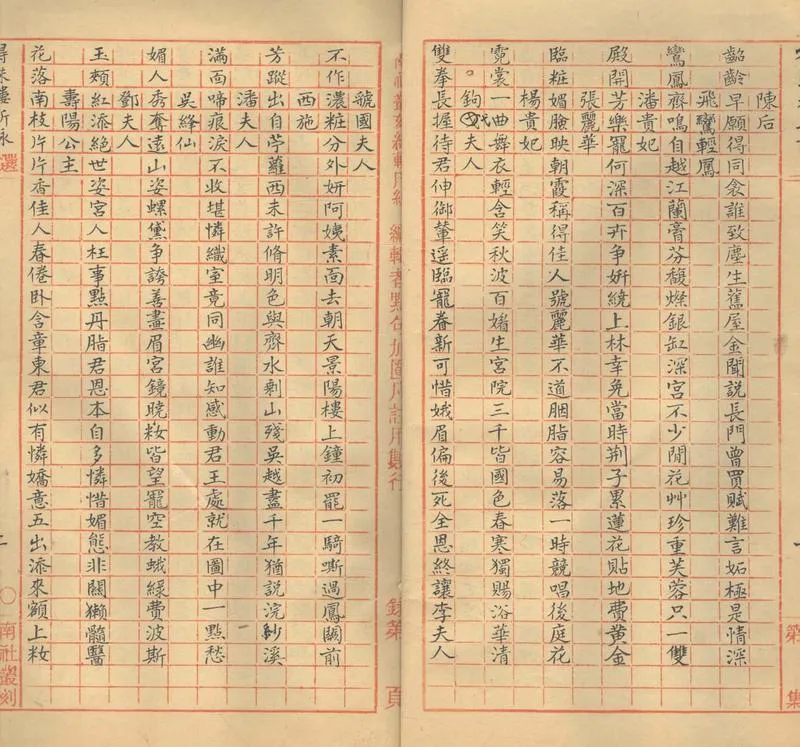 陳后
齠齡早願得同衾誰致塵生舊屋金聞說長門曾買賦難言妬極是情深
飛鸞輕鳳
鸞鳳齊鳴自越江蘭膏芬馥燦銀缸深宮不少閒花艸珍重芙蓉只一雙
潘貴妃
殿開芳樂寵何深百卉争妍繞上林幸免當時荆子累蓮花貼地費黃金
張麗華
臨粧媚臉映朝霞稱得佳人號麗華不道胭脂容易落一時競唱後庭花
楊貴妃
霓裳一曲舞衣輕含笑秋波百媚生宮院三千皆國色春寒獨賜浴華清
鉤弋夫人
雙拳長握待君伸御輦遥臨寵眷新可惜娥眉偏後死全恩終讓李夫人
虢國夫人
不作濃粧分外妍阿姨素面去朝天景陽樓上鐘初罷一騎嘶過鳳闕前
西施
芳蹤出自苧蘿西未許脩明色與齊水剩山殘吳越盡千年猶説浣紗溪
潘夫人
滿面啼痕淚不收堪憐織室竟同幽誰知感動君王處就在圖中一點愁
吳絳仙
媚人秀奪遠山姿螺黛争誇善畫眉宮鏡曉妝皆望寵空教蛾綠費波斯
鄧夫人
玉頰紅添絕世姿宮人枉事點丹脂君恩本自多憐惜媚態非關獺髓醫
壽陽公主
花落南枝片片香佳人春倦卧含章東君似有憐嬌意五出添來額上妝
選
南社叢刻
編輯者點句加圈凡詩用集行
錄第 頁
第 集